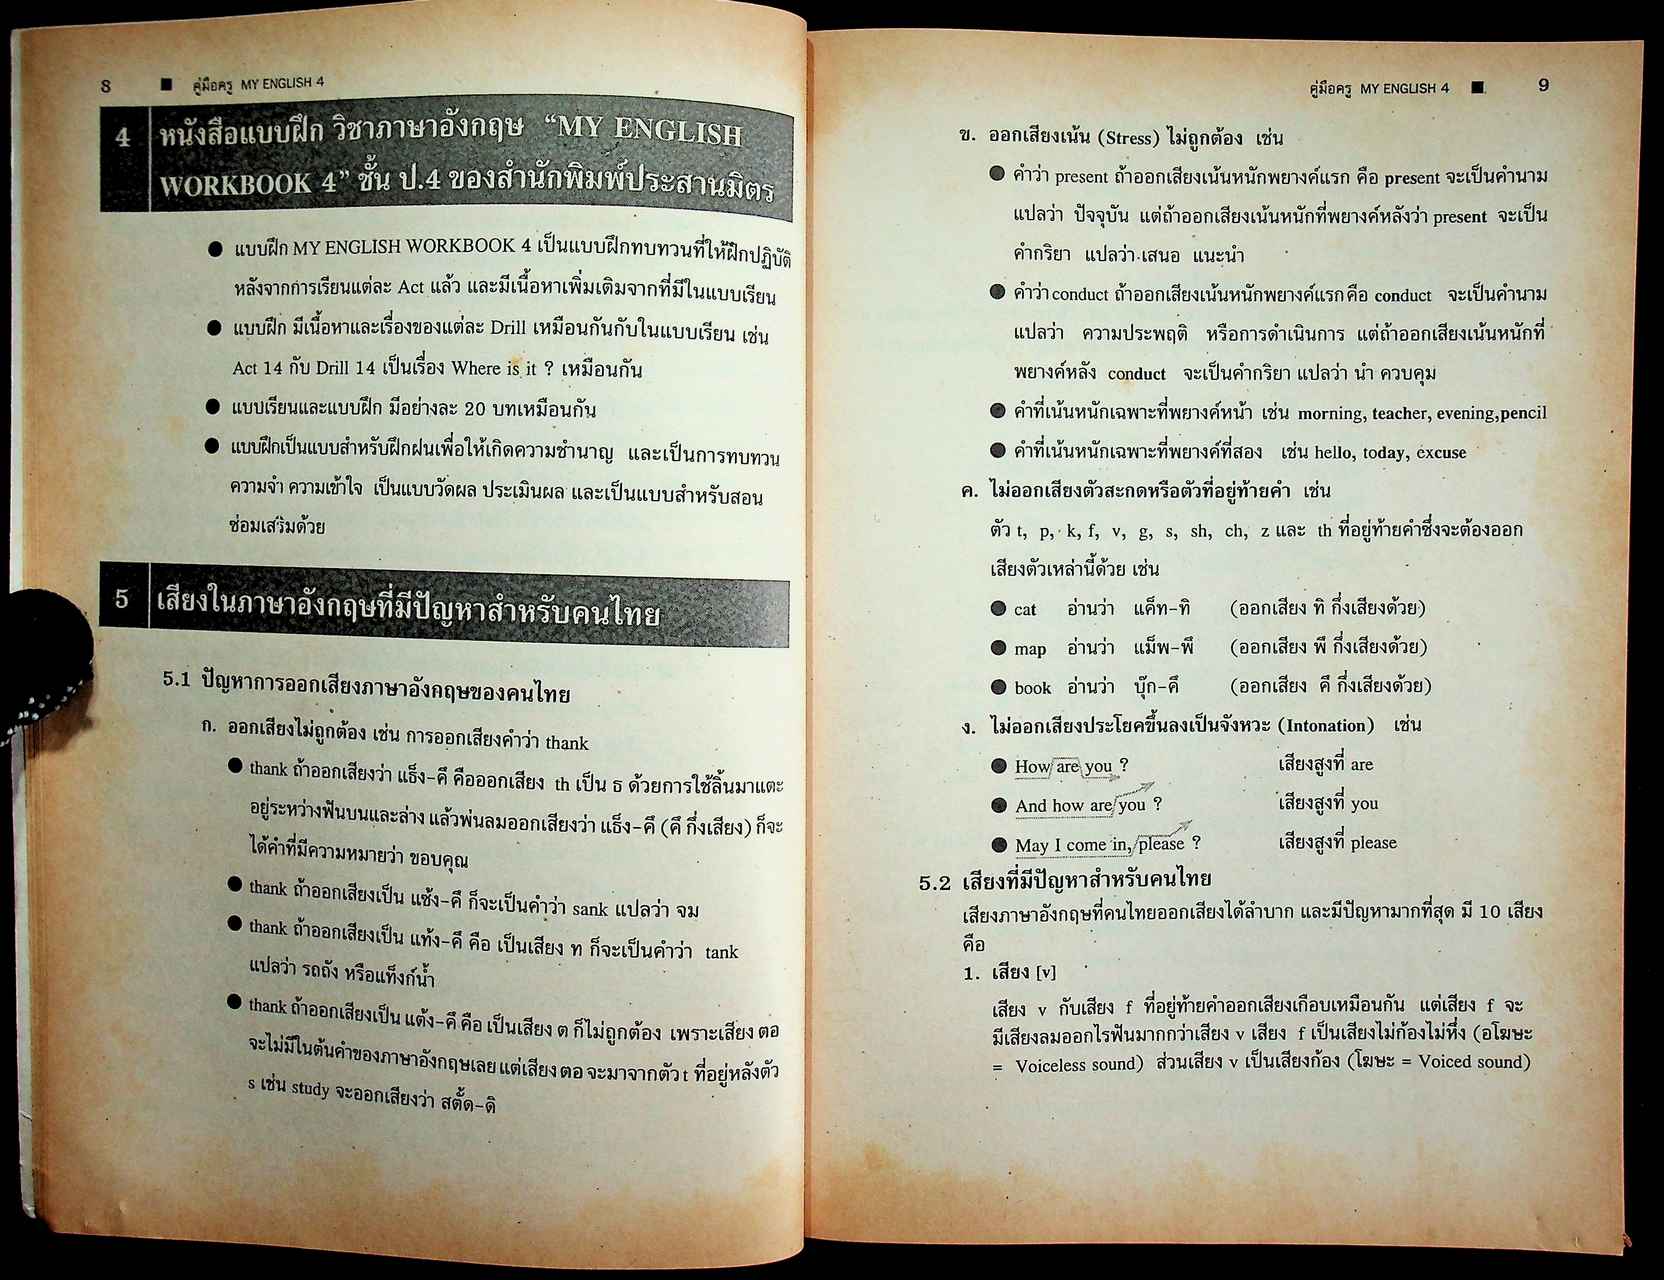 8 ■ คู่มือครู MY ENGLISH 4
4 หนังสือแบบฝึก วิชาภาษาอังกฤษ “MY ENGLISH
WORKBOOK 4” ชั้น ป.4 ของสำนักพิมพ์ประสานมิตร
● แบบฝึก MY ENGLISH WORKBOOK 4 เป็นแบบฝึกทบทวนที่ให้ฝึกปฏิบัติ
หลังจากการเรียนแต่ละ Act แล้ว และมีเนื้อหาเพิ่มเติมจากที่มีในแบบเรียน
● แบบฝึก มีเนื้อหาและเรื่องของแต่ละ Drill เหมือนกันกับในแบบเรียน เช่น
Act 14 กับ Drill 14 เป็นเรื่อง Where is it ? เหมือนกัน
● แบบเรียนและแบบฝึก มีอย่างละ 20 บทเหมือนกัน
● แบบฝึกเป็นแบบสำหรับฝึกฝนเพื่อให้เกิดความชำนาญ และเป็นการทบทวน
ความจำ ความเข้าใจ เป็นแบบวัดผล ประเมินผล และเป็นแบบสำหรับสอน
ซ่อมเสริมด้วย
5 เสียงในภาษาอังกฤษที่มีปัญหาสำหรับคนไทย
5.1 ปัญหาการออกเสียงภาษาอังกฤษของคนไทย
ก. ออกเสียงไม่ถูกต้อง เช่น การออกเสียงคำว่า thank
● thank ถ้าออกเสียงว่า แธ็ง-คึ คือออกเสียง th เป็น ธ ด้วยการใช้ลิ้นมาแตะ
อยู่ระหว่างฟันบนและล่าง แล้วพ่นลมออกเสียงว่า แธ็ง-คึ (คึ กึ่งเสียง) ก็จะ
ได้คำที่มีความหมายว่า ขอบคุณ
● thank ถ้าออกเสียงเป็น แซ้ง-คึ ก็จะเป็นคำว่า sank แปลว่า จม
● thank ถ้าออกเสียงเป็น แท้ง-คึ คือ เป็นเสียง ท ก็จะเป็นคำว่า tank
แปลว่า รถถัง หรือแท็งก์น้ำ
● thank ถ้าออกเสียงเป็น แต้ง-คึ คือ เป็นเสียง ต ก็ไม่ถูกต้อง เพราะเสียง ตอ
จะไม่มีในต้นคำของภาษาอังกฤษเลย แต่เสียง ตอ จะมาจากตัว t ที่อยู่หลังตัว
s เช่น study จะออกเสียงว่า สตั้ด-ดิ
คู่มือครู MY ENGLISH 4 ■ 9
ข. ออกเสียงเน้น (Stress) ไม่ถูกต้อง เช่น
● คำว่า present ถ้าออกเสียงเน้นหนักพยางค์แรก คือ present จะเป็นคำนาม
แปลว่า ปัจจุบัน แต่ถ้าออกเสียงเน้นหนักที่พยางค์หลังว่า present จะเป็น
คำกริยา แปลว่า เสนอ แนะนำ
● คำว่า conduct ถ้าออกเสียงเน้นหนักพยางค์แรก คือ conduct จะเป็นคำนาม
แปลว่า ความประพฤติ หรือการดำเนินการ แต่ถ้าออกเสียงเน้นหนักที่
พยางค์หลัง conduct จะเป็นคำกริยา แปลว่า นำ ควบคุม
● คำที่เน้นหนักเฉพาะที่พยางค์หน้า เช่น morning, teacher, evening,pencil
● คำที่เน้นหนักเฉพาะที่พยางค์ที่สอง เช่น hello, today, excuse
ค. ไม่ออกเสียงตัวสะกดหรือตัวที่อยู่ท้ายคำ เช่น
ตัว t, p, k, f, v, g, s, sh, ch, z และ th ที่อยู่ท้ายคำซึ่งจะต้องออก
เสียงตัวเหล่านี้ด้วย เช่น
● cat อ่านว่า แค็ท-ทิ (ออกเสียง ทิ กึ่งเสียงด้วย)
● map อ่านว่า แม็พ-พึ (ออกเสียง พึ กึ่งเสียงด้วย)
● book อ่านว่า บุ๊ก-คึ (ออกเสียง คึ กึ่งเสียงด้วย)
ง. ไม่ออกเสียงประโยคขึ้นลงเป็นจังหวะ (Intonation) เช่น
● How are you ? เสียงสูงที่ are
● And how are you ? เสียงสูงที่ you
● May I come in, please ? เสียงสูงที่ please
5.2 เสียงที่มีปัญหาสำหรับคนไทย
เสียงภาษาอังกฤษที่คนไทยออกเสียงได้ลำบาก และมีปัญหามากที่สุด มี 10 เสียง
คือ
1. เสียง [v]
เสียง v กับเสียง f ที่อยู่ท้ายคำออกเสียงเกือบเหมือนกัน แต่เสียง f จะ
มีเสียงลมออกไรฟันมากกว่าเสียง v เสียง f เป็นเสียงไม่ก้องไม่หึ่ง (อโฆษะ
= Voiceless sound) ส่วนเสียง v เป็นเสียงก้อง (โฆษะ = Voiced sound)